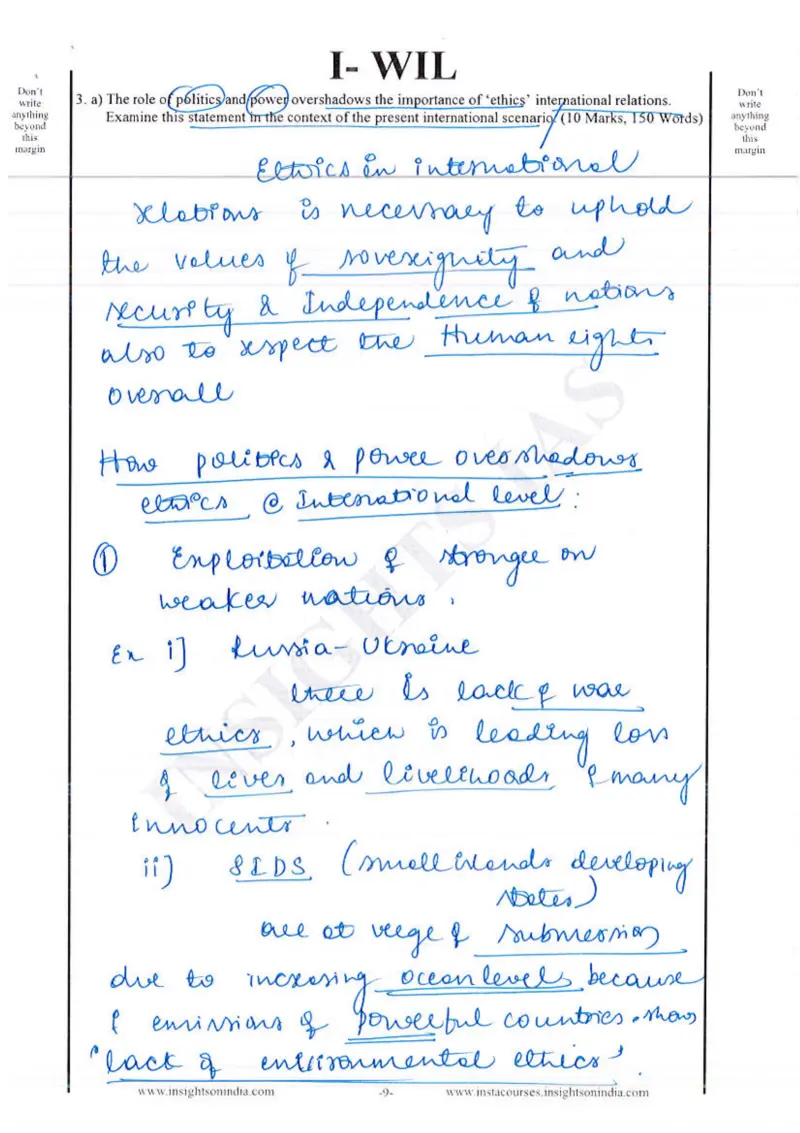 I- WIL
Don't
write
anything
beyond
this
margin
3. a) The role of politics and power overshadows the importance of 'ethics' international relations.
Examine this statement in the context of the present international scenario (10 Marks, 150 Words)
Don't
write
anything
beyond
this
margin
Ethics in international
relations is necessary to uphold
the values of sovereignity and
security & Independence of nations
also to respect the Human rights
overall
How politics & power overshadows
ethics @ International level:
① Exploitation of stronger on
weaker nations.
Ex i] Russia - Ukraine
there is lack of war
ethics, which is leading loss
of lives and livelihoods of many
innocents.
ii] SIDS (small islands developing
states)
are at verge of submersion
due to incresing ocean levels because
of emissions of powerful countries. shows
'lack of environmental ethics'.
INSIGHTS IAS
www.insightsonindia.com -9- www.instacourses.insightsonindia.com